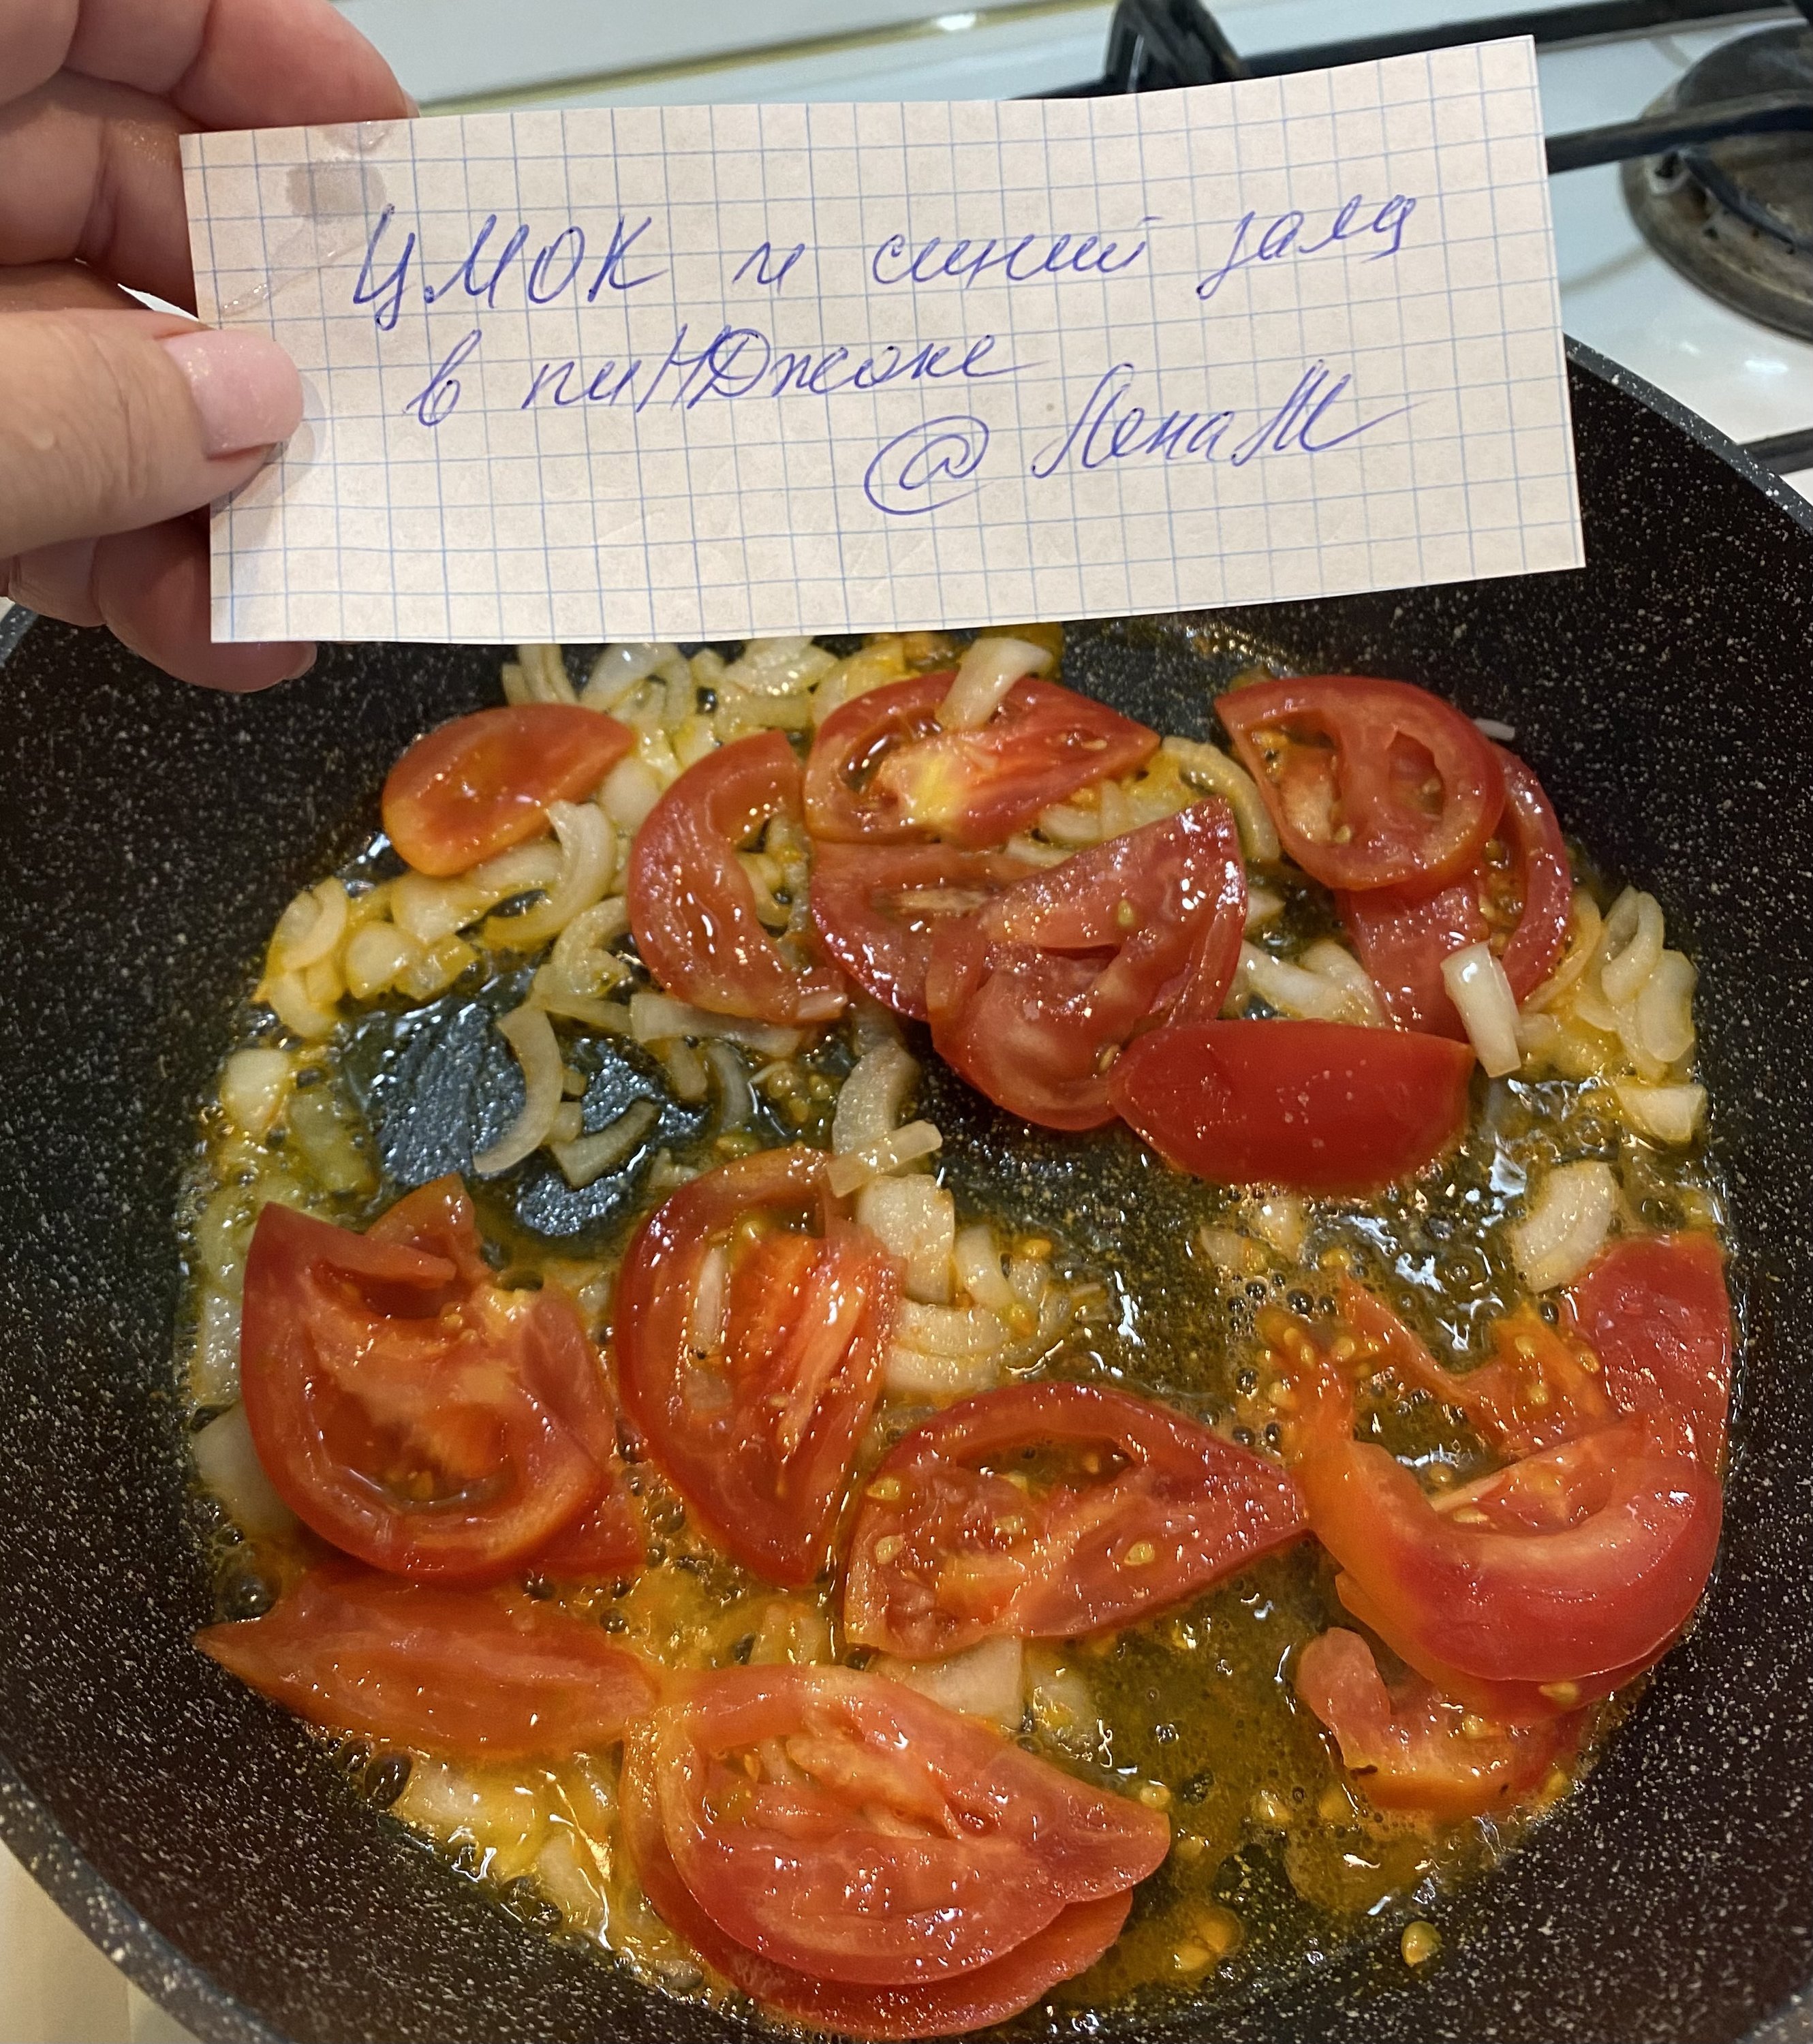 ЦМОК и синий заяц
в пиНДжоке
@ ЛенаЖ